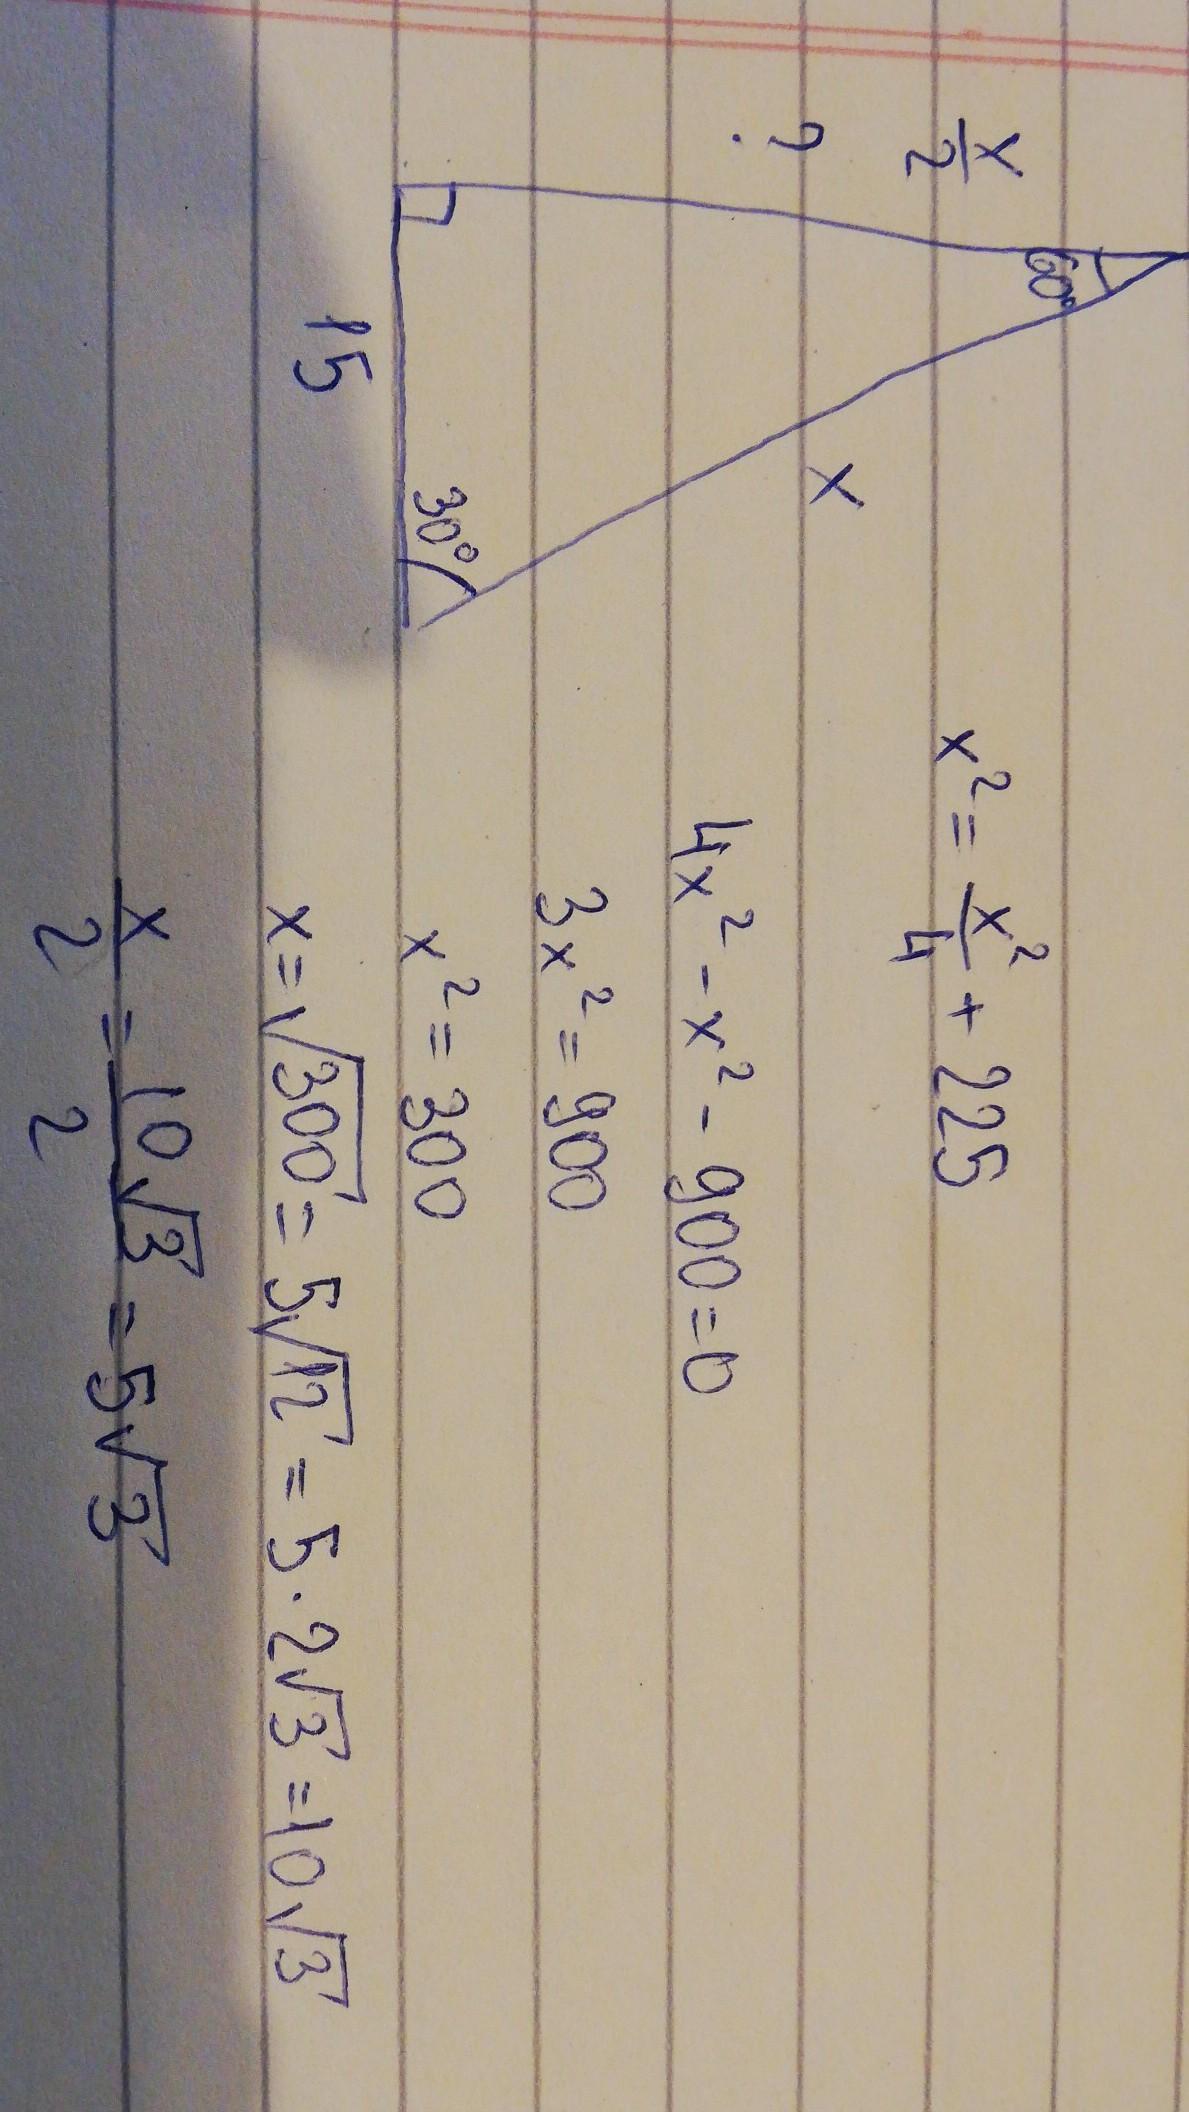 x/2
?
60°
x
30°
15
x² = x²/4 + 225
4x² - x² - 900 = 0
3x² = 900
x² = 300
x = √300 = 5√12 = 5 · 2√3 = 10√3
x/2 = 10√3/2 = 5√3